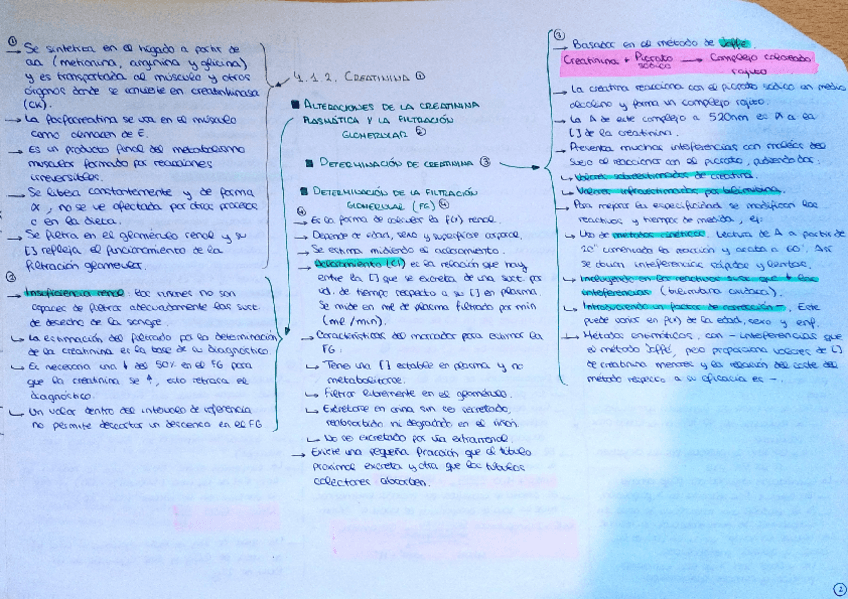 ①
→ Se sintetiza en el hígado a partir de
aa (metionina, arginina y glicina)
y es transportada al músculo y otros
órganos donde se convierte en creatinkinasa
(CK).
→ La fosfocreatina se usa en el músculo
como almacen de E.
→ Es un producto final del metabolismo
muscular formado por reacciones
irreversibles.
→ Se libera constantemente y de forma
, no se ve afectada por otros procesos
o en la dieta.
→ Se filtra en el glomérulo renal y su
[] refleja el funcionamiento de la
filtración glomerular.
②
→ Insuficiencia renal: los riñones no son
capaces de filtrar adecuadamente las sust.
de desecho de la sangre.
↳ La estimación del filtrado por la determinación
de la creatinina es la base de su diagnóstico
↳ Es necesaria una ↓ del 50% en el FG para
que la creatinina se ↑, esto retrasa el
diagnóstico.
↳ Un valor dentro del intervalo de referencia
no permite descartar un descenso en el FG
4.1.2. CREATININA ①
■ ALTERACIONES DE LA CREATININA
PLASMÁTICA Y LA FILTRACIÓN
GLOMERULAR ②
■ DETERMINACIÓN DE CREATININA ③
■ DETERMINACIÓN DE LA FILTRACIÓN
GLOMERULAR (FG) ④
④
→ Es la forma de valorar la f(x) renal.
→ Depende de edad, sexo y superficie corporal.
→ Se estima midiendo el aclaramiento.
→ Aclaramiento (Cl) es la relación que hay
entre la [] que se excreta de una sust por
ud. de tiempo respecto a su [] en plasma.
Se mide en ml de plasma filtrado por min
(ml/min).
→ Características del marcador para estimar la
FG.
↳ Tiene una [] estable en plasma y no
metabolitarse.
↳ Filtrar libremente en el glomérulo.
↳ Excretarse en orina sin ser secretado,
reabsorbido ni degradado en el riñón.
↳ No es excretado por vía extrarrenal.
→ Existe una pequeña fracción que el túbulo
proximal excreta y otra que los túbulos
colectores absorben.
③
→ Basados en el método de Jaffé.
Creatinina + Picrato sódico → Complejo coloreado
rojizo
→ La creatina reacciona con el picrato sódico en medio
alcalino y forma un complejo rojizo.
→ La A de este complejo a 520nm es a la
[] de la creatinina.
→ Presenta muchas interferencias con moléc del
suero al reaccionar con el picrato, pudiendo dar:
↳ Valores sobrestimados de creatina.
↳ Valores infraestimados por bilirrubina.
→ Para mejorar la especificidad se modifican los
reactivos y tiempos de medida, ej:
↳ Uso de métodos cinéticos. Lectura de A a partir de
20'' comenzada la reacción y acaba a 60''. Así
se obvian interferencias rápidas y lentas.
↳ Incluyendo en los reactivos sust que ↓ las
interferencias (bilirrubina oxidasa).
↳ Introduciendo un factor de corrección -. Este
puede variar en f(x) de la edad, sexo y enf.
↳ Métodos enzimáticos, con - interferencias que
el método Jaffé, pero proporciona valores de []
de creatinina menores y la relación del coste del
método respecto a su eficacia es -.
2